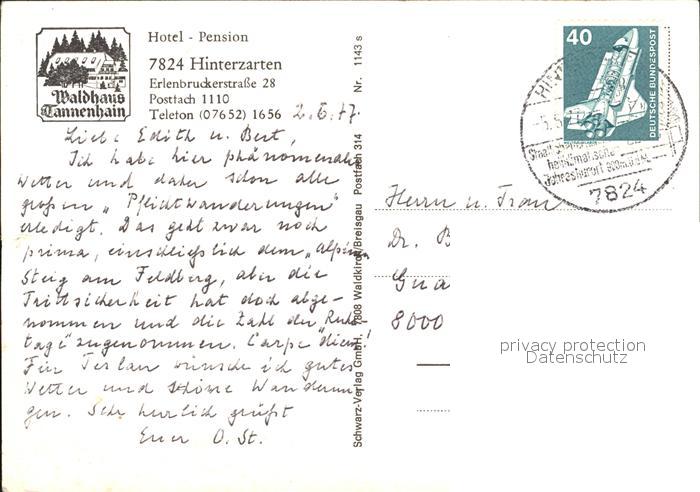 Hotel - Pension
7824 Hinterzarten
Erlenbruckerstraße 28
Postfach 1110
Telefon (07652) 1656
Waldhaus
Tannenhain
2.6.77.
Liebe Edith u. Bert,
Ich habe hier phänomenales
Wetter und daher schon alle
großen „Pflichtwanderungen"
erledigt. Das geht zwar noch
prima, einschließlich dem „Alpinen
Steig am Feldberg, aber die
Trittsicherheit hat doch abge-
nommen und die Zahl der „Ruhe-
tage" zugenommen. Carpe diem!
Für Terlan wünsche ich gutes
Wetter und schöne Wanderun-
gen. Sehr herzlich grüßt
Euer O. St.
Schwarz-Verlag GmbH, 7808 Waldkirch/Breisgau Postfach 314 Nr. 1143 s
40
DEUTSCHE BUNDESPOST
heilklimatische
7824
Herrn u. Frau
Dr. B
8000
privacy protection
Datenschutz